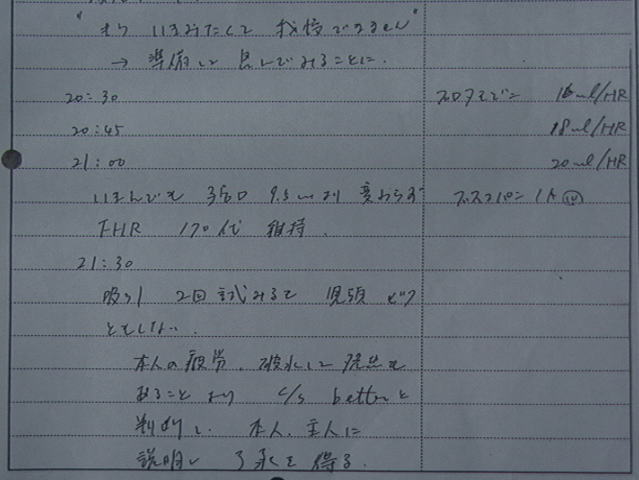 "もう いきみたくて 我慢できません"
→ 準備して 息んでみることに.
20:30 プロスモン 16ml/HR
20:45 18ml/HR
21:00 20ml/HR
いきんでも 子宮口 9.5cmより 変わらず ブスコパン 1A
FHR 170代 維持.
21:30
吸引 2回試みるも 児頭 びく
ともしない.
本人の疲労、破水して 発熱も
あること より c/s betterと
判断し、本人、主人に
説明し 了承を得る.